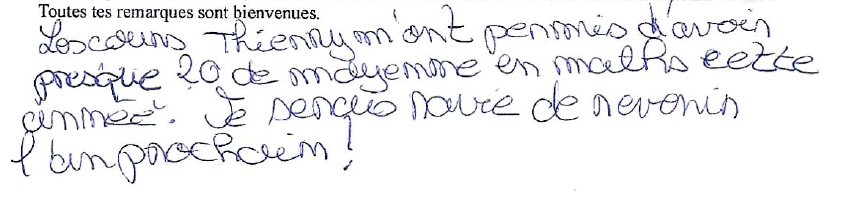 Toutes tes remarques sont bienvenues.
Les cours Thierry m'ont permis d'avoir
presque 20 de moyenne en maths cette
année. Je serais ravie de revenir
l'an prochain !